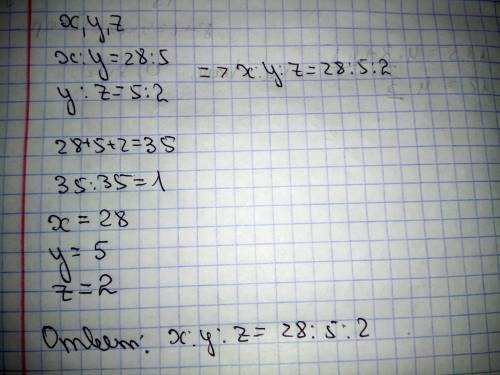 x, y, z
x:y=28:5
y:z=5:2
=> x:y:z=28:5:2
28+5+2=35
35:35=1
x=28
y=5
z=2
Ответ: x:y:z=28:5:2